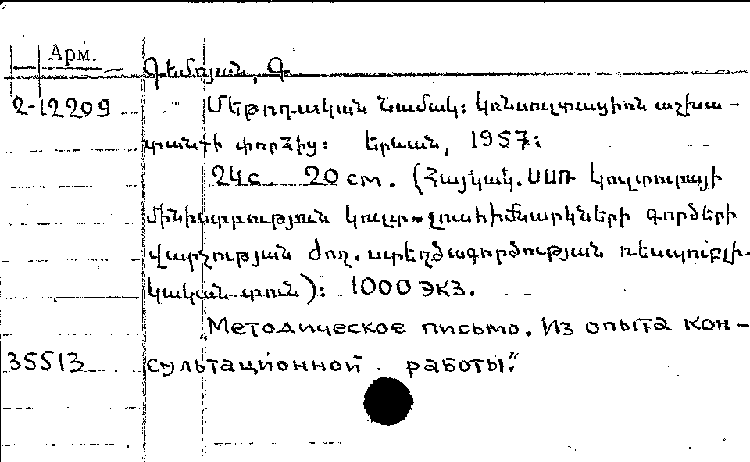 Арм.
Գեմոյան, Գ.
2-12209 Մեթոդական նամակ: Կոնսուլտացիոն աշխա-
տանքի փորձից: Երևան, 1957:
24с. 20 cm. (Հայկակ. ՍՍՌ Կուլտուրայի
մինիստրության կուլտ-լուս հիմնարկների գործերի
վարչության ժող. ստեղծագործության ռեսպուբլի-
կական տուն): 1000 экз.
"Методическое письмо. Из опыта кон-
35513 сультационной работы."